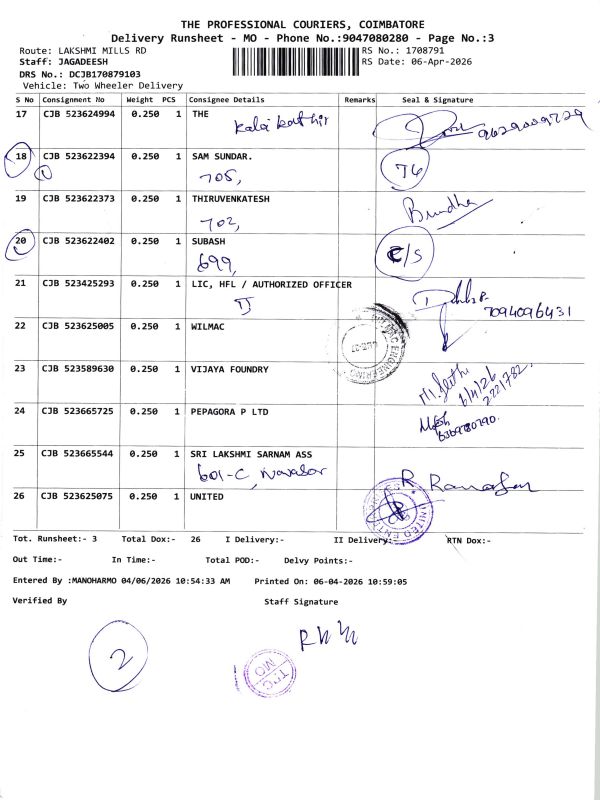 THE PROFESSIONAL COURIERS, COIMBATORE
Delivery Runsheet - MO - Phone No.:9047080280 - Page No.:3
Route: LAKSHMI MILLS RD RS No.: 1708791
Staff: JAGADEESH RS Date: 06-Apr-2026
DRS No.: DCJB170879103
Vehicle: Two Wheeler Delivery
S No Consignment No Weight PCS Consignee Details Remarks Seal & Signature
17 CJB 523624994 0.250 1 THE
Kalai kathir 9629009729
18 CJB 523622394 0.250 1 SAM SUNDAR.
1 705, T4
19 CJB 523622373 0.250 1 THIRUVENKATESH
702, Bundha
20 CJB 523622402 0.250 1 SUBASH
699, C/S
21 CJB 523425293 1 0.250 LIC, HFL / AUTHORIZED OFFICER
7094096431
22 CJB 523625005 0.250 1 WILMAC
23 CJB 523589630 0.250 1 VIJAYA FOUNDRY
6/4/26
221782
24 CJB 523665725 0.250 1 PEPAGORA P LTD
25 CJB 523665544 0.250 1 SRI LAKSHMI SARNAM ASS
601-C,
26 CJB 523625075 0.250 1 UNITED
Tot. Runsheet:- 3 Total Dox:- 26 I Delivery:- II Delivery:- RTN Dox:-
Out Time:- In Time:- Total POD:- Delvy Points:-
Entered By :MANOHARMO 04/06/2026 10:54:33 AM Printed On: 06-04-2026 10:59:05
Verified By Staff Signature
2
TPC
MO